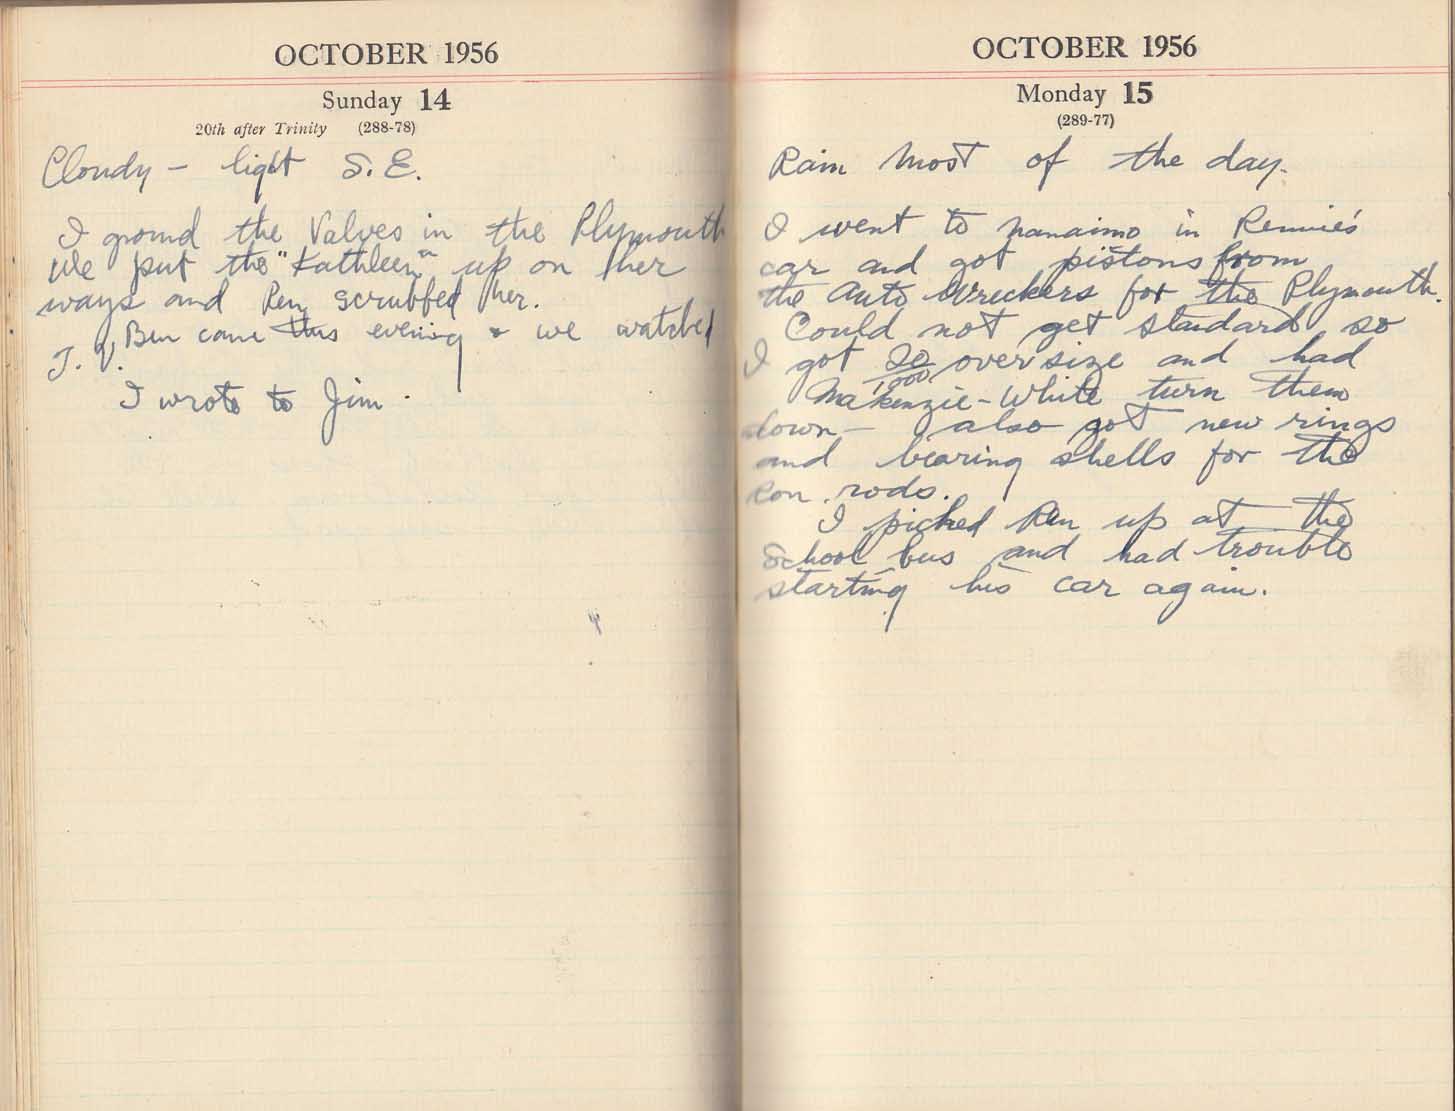 OCTOBER 1956
Sunday 14
20th after Trinity (288-78)
Cloudy – light S.E.
I ground the Valves in the Plymouth
We put the "Kathleen" up on her
ways and Ren scrubbed her.
Ben came this evening & we watched
T.V.
I wrote to Jim.
OCTOBER 1956
Monday 15
(289-77)
Rain most of the day.
I went to Nanaimo in Rennie's
car and got pistons from
the Auto Wreckers for the Plymouth.
Could not get standard so
I got 20/1000 oversize and had
Makenzie-White turn them
down – also got new rings
and bearing shells for the
Con. rods.
I picked Ren up at the
School bus and had trouble
starting his car again.